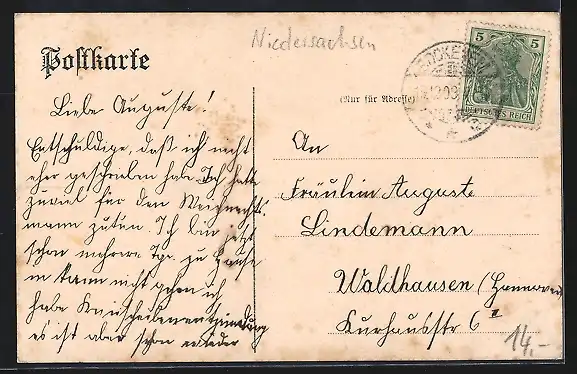 Niedersachsen
Postkarte
5 5
DEUTSCHES REICH
(Nur für Adresse)
Liebe Auguste!
Entschuldige, daß ich nicht
eher geschrieben habe. Ich hatte
zuviel für den Weihnachts-
mann zutun. Ich bin jetzt
schon mehrere Tge. zu Hause
u kann nicht gehen ich
habe Kniescheibenentzündung
es ist aber schon wieder
An
Fräulein Auguste
Lindemann
Waldhausen (Hannover)
Kurhausstr 6 II
14,-